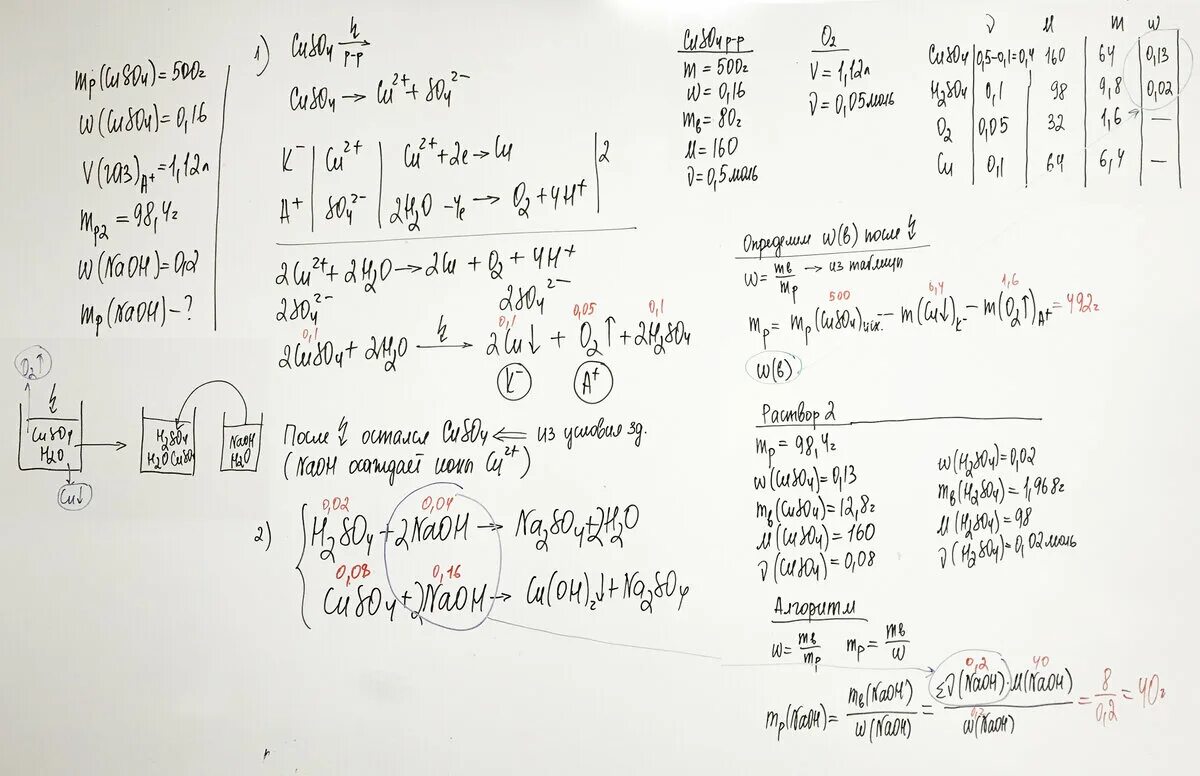 mр(CuSO4)=500г
w(CuSO4)=0,16
V(газ)A+=1,12л
mр2=98,4г
w(NaOH)=0,2
mр(NaOH)-?
O2↑
CuSO4
H2O
Cu↓
H2SO4
H2O CuSO4
NaOH
H2O
1) CuSO4 → р-р
CuSO4 → Cu2+ + SO4 2-
K- | Cu2+ | Cu2+ + 2e → Cu | 2
A+ | SO4 2- | 2H2O - 4e → O2 + 4H+
2Cu2+ + 2H2O → 2Cu + O2 + 4H+
2SO4 2- 2SO4 2-
0,1 0,1 0,05 0,1
2CuSO4 + 2H2O → 2Cu↓ + O2↑ + 2H2SO4
K- A+
После остался CuSO4 ⇐ из условия зд.
(NaOH осаждает ионы Cu2+)
0,02 0,04
2) H2SO4 + 2NaOH → Na2SO4 + 2H2O
0,08 0,16
CuSO4 + 2NaOH → Cu(OH)2↓ + Na2SO4
CuSO4 р-р
m = 500г
w = 0,16
mв = 80г
M = 160
ν = 0,5 моль
O2
V = 1,12л
ν = 0,05 моль
ν M m w
CuSO4 | 0,5-0,1=0,4 | 160 | 64 | 0,13
H2SO4 | 0,1 | 98 | 9,8 | 0,02
O2 | 0,05 | 32 | 1,6 | —
Cu | 0,1 | 64 | 6,4 | —
Определим w(в) после
w = mв/mр → из таблицы
500 6,4 1,6
mр = mр(CuSO4)исх. - m(Cu↓)K- - m(O2↑)A+ = 492г
w(в)
Раствор 2
mр = 98,4г
w(CuSO4)=0,13
mв(CuSO4)=12,8г
M(CuSO4)=160
ν(CuSO4)=0,08
w(H2SO4)=0,02
mв(H2SO4)=1,968г
M(H2SO4)=98
ν(H2SO4)=0,02 моль
Алгоритм
w = mв/mр mр = mв/w
0,2 40
mр(NaOH) = mв(NaOH)/w(NaOH) = Σν(NaOH)·M(NaOH)/w(NaOH) = 8/0,2 = 40г
0,2